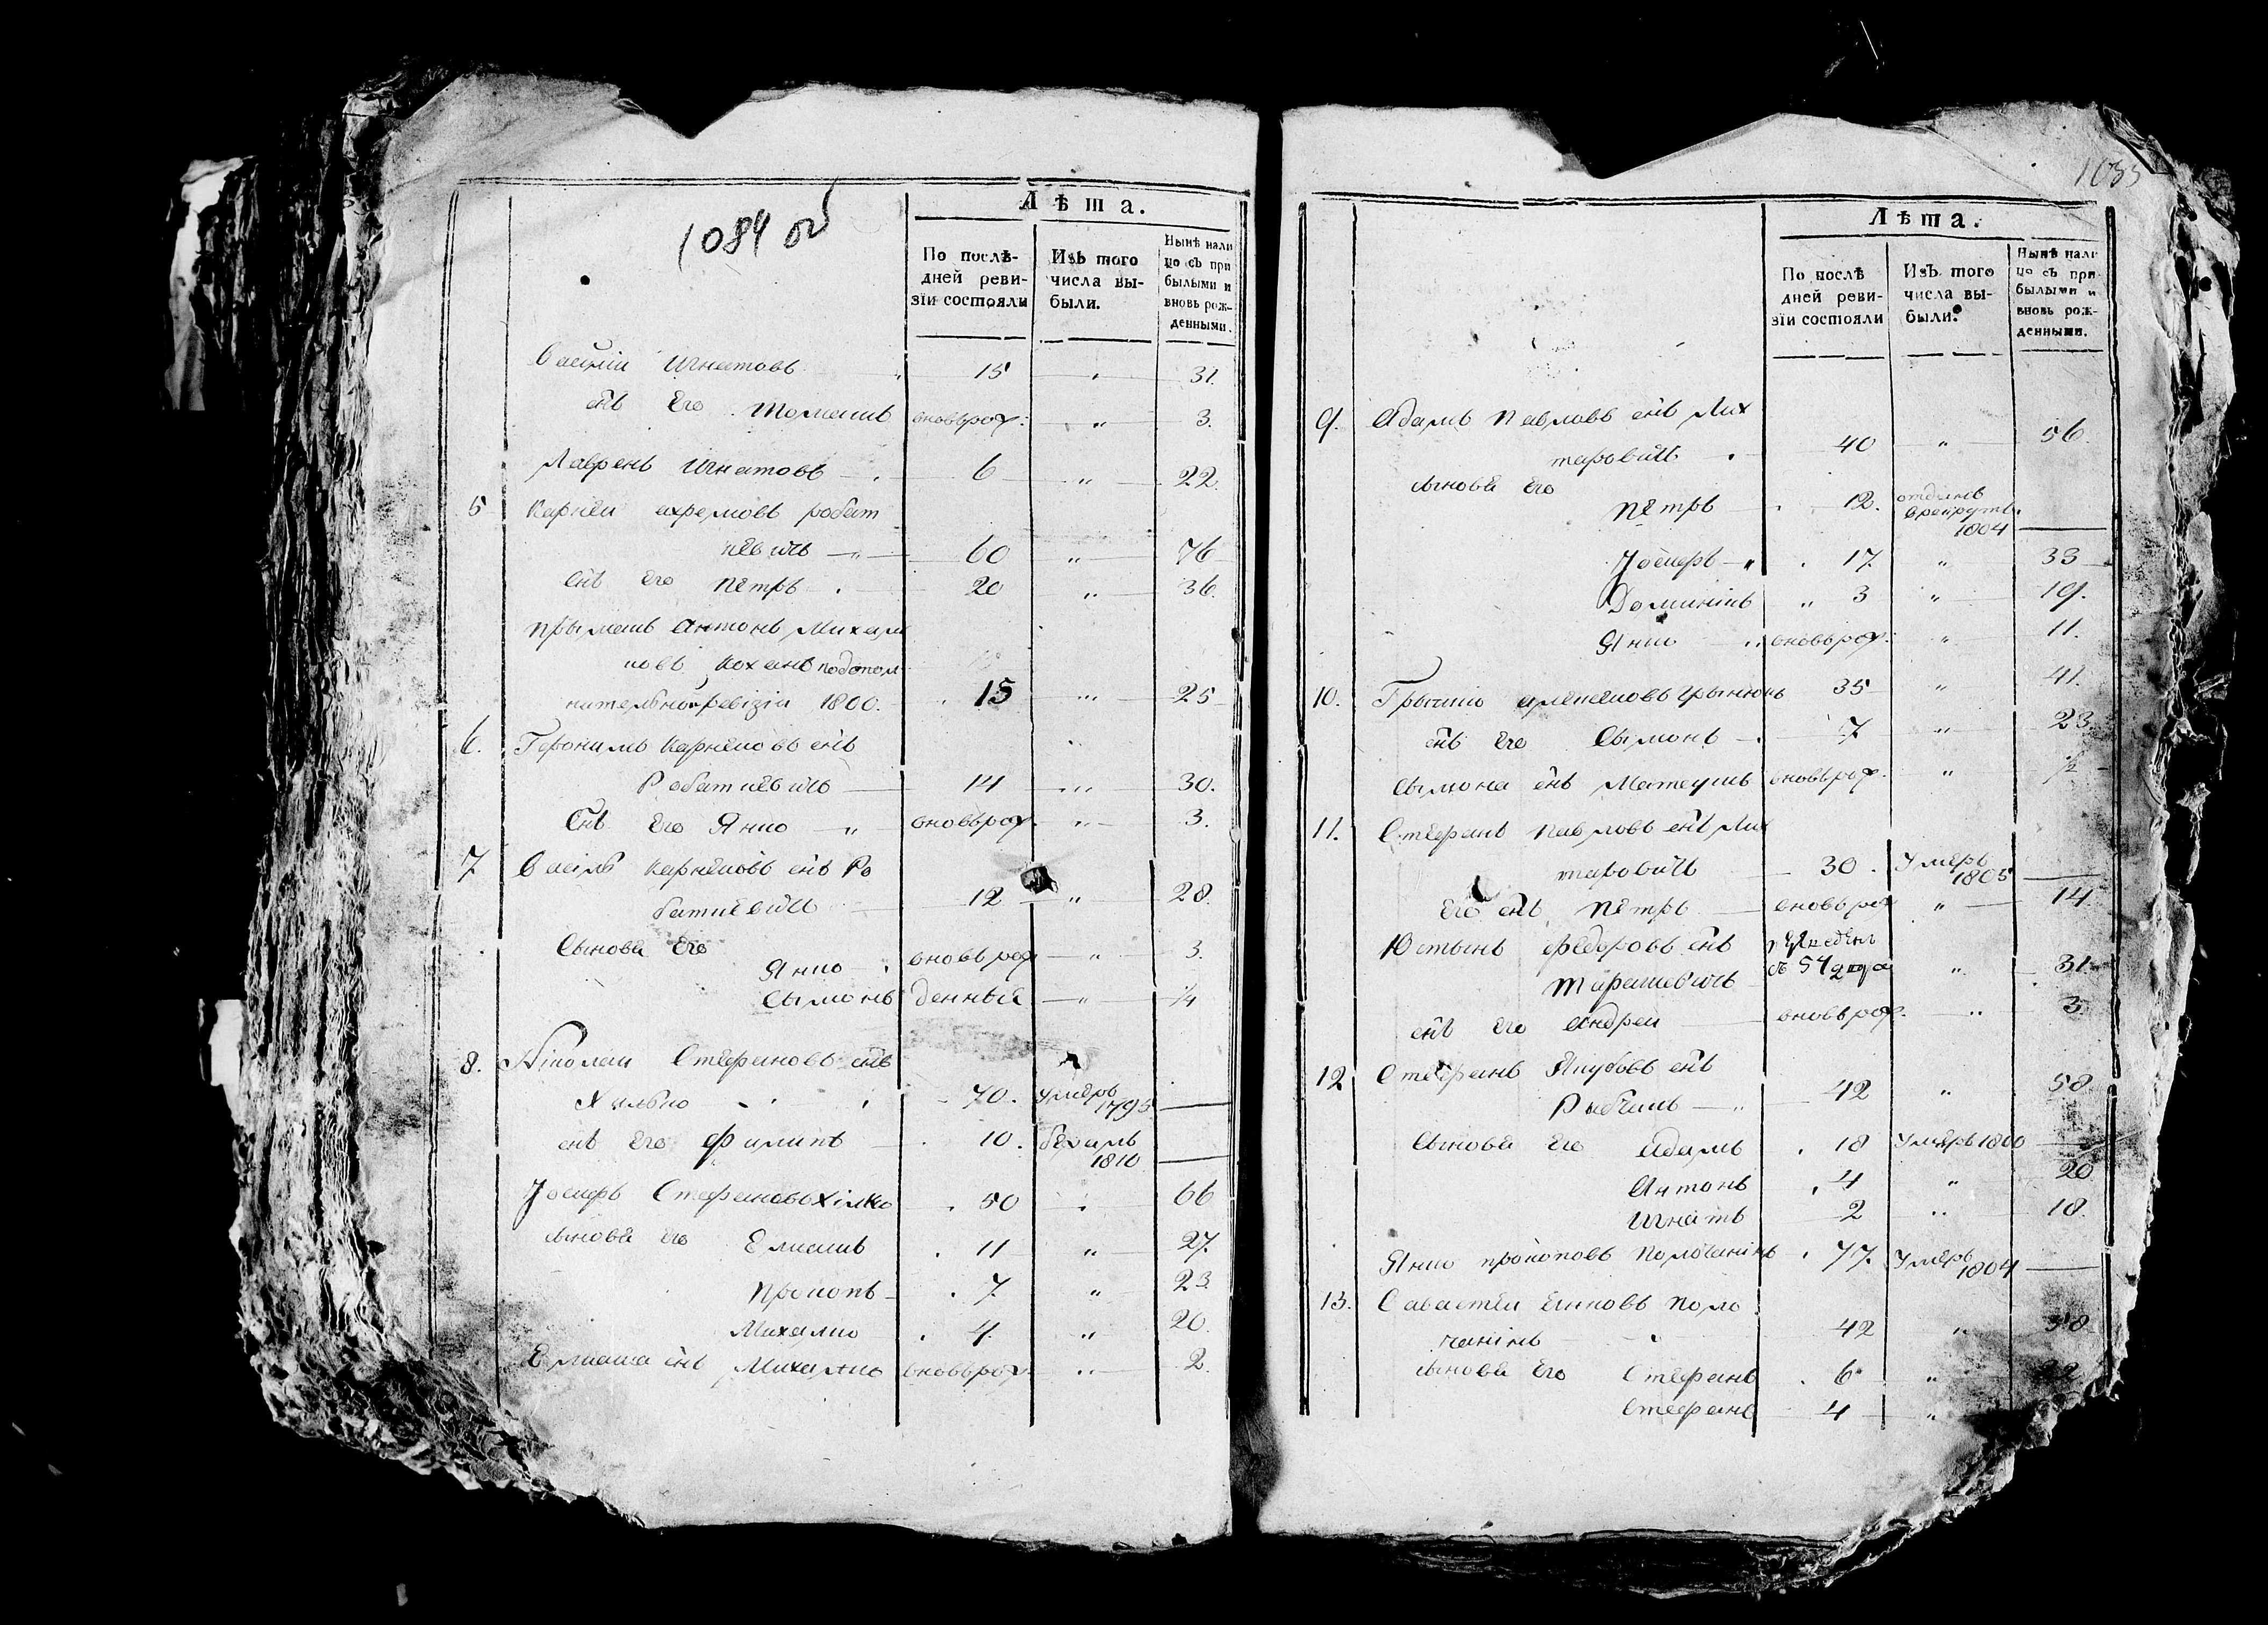 1084 об
Лѣта.
По послѣ-
дней реви-
зїи состояли
Изъ того
числа вы-
были.
Нынѣ нали
цо съ при
былыми и
вновь рож-
денными.
Василій Игнатовъ 15 „ 31.
снъ Его Томашъ вновьрож: „ 3.
Лаврень Игнатовъ 6 „ 22.
5 Карней ахремовъ робат
кевичъ 60 „ 76
Снъ Его Петръ 20 „ 36.
прымашъ Антонъ Михал
ковъ Коханъ подопол
нительной ревізіи 1800. 15 „ 25
6. Геронимъ Карненовъ снъ
Робаткевичъ 14 „ 30.
Снъ Его Янко „ вновьрож. „ 3.
7 Васіль Карненовъ снъ Ро
баткевичъ 12 „ 28.
Сынове Его
Янко вновьрож „ 3.
Сымонъ денныи „ 1/4
8. Ніколай Стефановъ снъ
Хилько 70. Умеръ
1795
снъ Его Филипъ 10. бежалъ
1810
Іосифъ Стефановъ Хілко 50 66
сынове Его Елиашъ 11 „ 27.
Прокопъ 7 „ 23
Михалко 4 „ 20.
Елиаша снъ Михалко вновьрож „ 2.
Лѣта.
По послѣ
дней реви-
зїи состояли
Изъ того
числа вы-
были.
Нынѣ нали
цо съ при-
былыми и
вновь рож-
денными.
9. Адамъ Павловъ снъ Лих
таровичъ 40 „ 56.
сынове Его
Петръ 12. отданъ
врекруты
1804
Іосифъ „ 17. „ 33
Доминікъ „ 3 „ 19.
Янко „ вновьрож: „ 11.
10. Грышко 35 „ 41.
снъ Его Сымонъ 7 „ 23.
Сымона снъ Матеушъ вновьрож. „ 1/2
11. Стефанъ Павловъ снъ Лих
таровичъ 30. Умеръ
1805
Его снъ Петръ вновьрож „ 14
Юстынъ Федоровъ снъ
Тарашевичъ съ 54 года „ 31.
снъ Его Андрей вновьрож. „ 3
12 Стефанъ Якубовъ снъ
Рыбакъ „ 42 „ 58.
Сынове Его Адамъ 18 Умеръ 1800
Антонъ 4 „ 20
Игнатъ 2 „ 18.
Янко прокоповъ Полочанінъ 77. Умеръ
1804
13. Савастеи Еыковъ Поло
чанінъ 42 „ 58
сынове Его Стефанъ 6 „ 22
Стефанъ 4 „